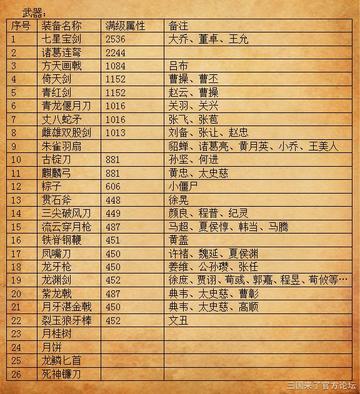 武器：
序号 装备名称 满级属性 备注
1 七星宝剑 2536 大乔、董卓、王允
2 诸葛连弩 2244
3 方天画戟 1084 吕布
4 倚天剑 1152 曹操、曹丕
5 青红剑 1152 赵云、曹操
6 青龙偃月刀 1016 关羽、关兴
7 丈八蛇矛 1016 张飞、张苞
8 雌雄双股剑 1013 刘备、张让、赵忠
9 朱雀羽扇 貂蝉、诸葛亮、黄月英、小乔、王美人
10 古锭刀 881 孙坚、何进
11 麒麟弓 881 黄忠、太史慈
12 粽子 606 小僵尸
13 贯石斧 448 徐晃
14 三尖破风刀 449 颜良、程普、纪灵
15 流云穿月枪 487 马超、夏侯惇、韩当、马腾
16 铁脊钢鞭 451 黄盖
17 凤嘴刀 450 许褚、魏延、夏侯渊
18 龙牙枪 450 姜维、公孙瓒、张任
19 龙渊剑 452 徐庶、贾诩、荀彧、郭嘉、程昱、荀攸等…
20 紫龙戟 487 典韦、太史慈、曹彰
21 月牙湛金戟 450 典韦、太史慈、高顺
22 裂玉狼牙棒 452 文丑
23 月桂树
24 月饼
25 龙鳞匕首
26 死神镰刀
三国来了官方论坛